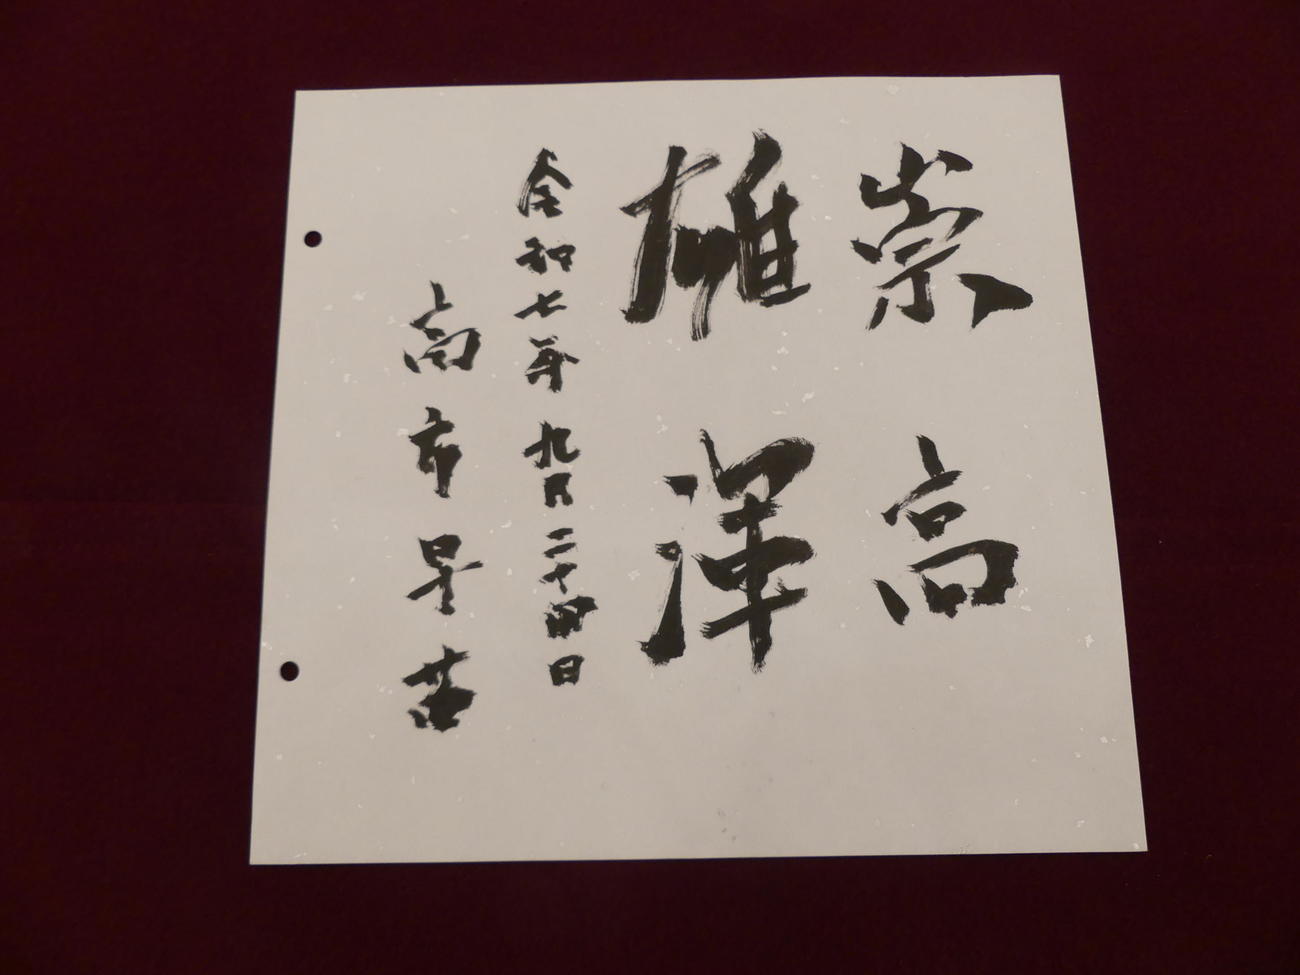 崇高
雄渾
令和七年九月二十四日
高市早苗